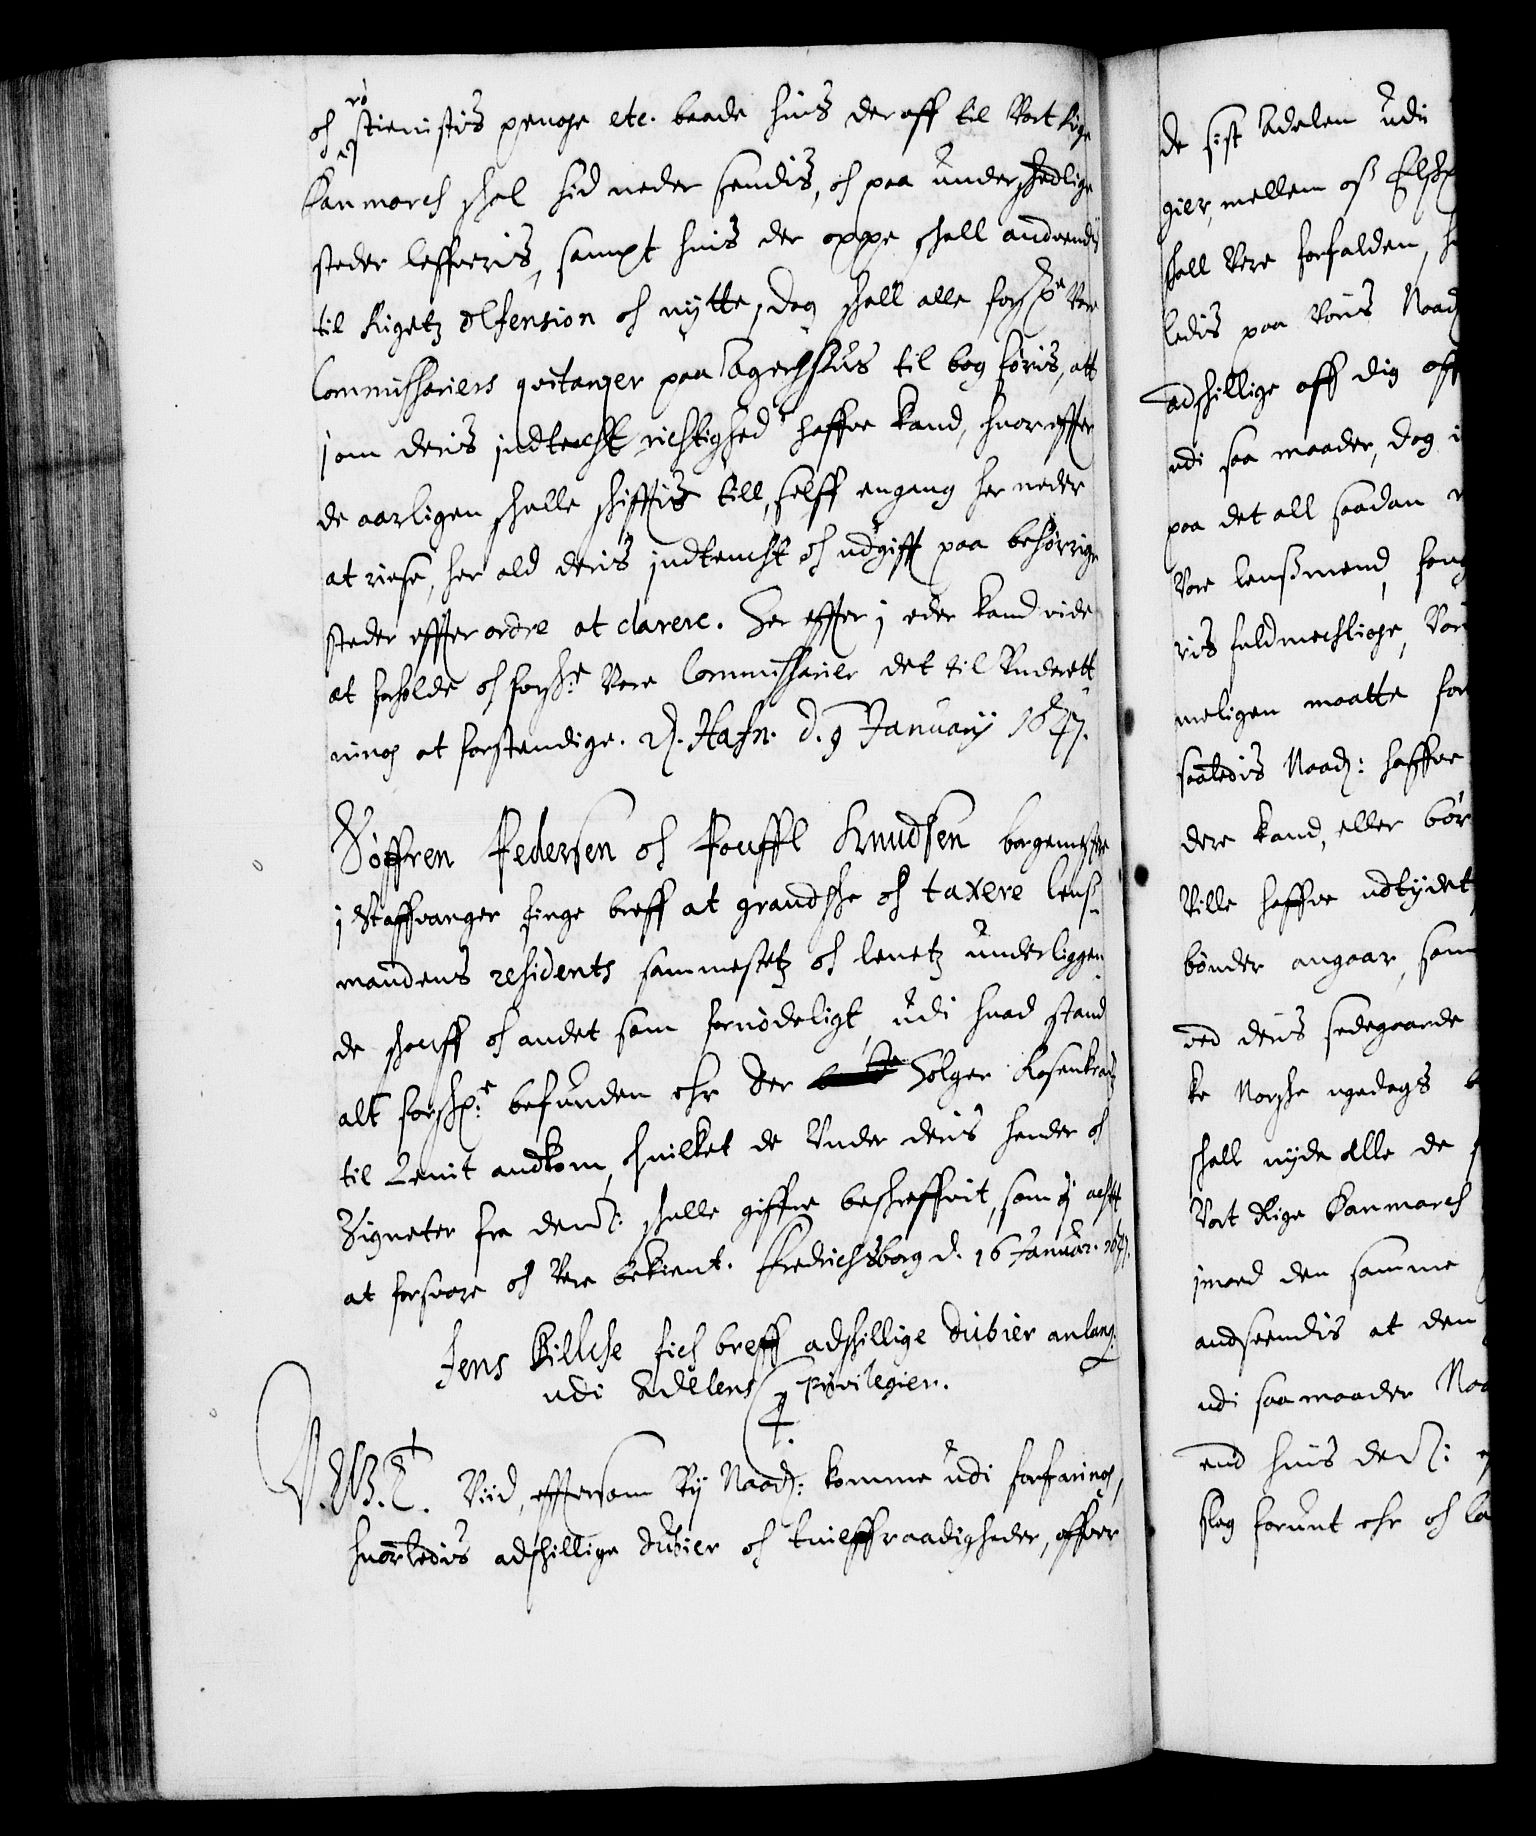 och rostienistis penge etc. baade huis der aff til Vort Rige
Danmarch skal hid neder sendis, och paa underskedlige
steder lefferis, sampt huis der oppe skall andvendis
til Rigetz defension och nytte, dog skall alle forskr:ne Vore
Commissariers qvitanzer paa Agershuus til bog føris, att
j om deris jndtecht richtighed haffve kand, huor effter
de aarligen skulle skiftis till, self engang her neder
at riese, her ald deris jndtecht och udgift paa behørrige
steder effter ordre at clarere. Her effter j eder kand vide
at forholde och forskr:ne Vore Commissarier det til Underrett
ning at forstendige. Hafn. d. 9 Januarij 1647.
Søffren Pedersen och Pouffl Knudsen borgemestre
j Staffvanger finge breff at grandske och taxere lens
mandens residents sammestetz och lenetz underliggen
de skouff och andet som fornødeligt, udi huad stand
alt forskr:ne befunden ehr der Holger Rosenkrantz
til Lenit andkom, huilket de Under deris hender och
Signeter fra dennem: skulle giffve beskreffvit, som j acht
at forsvare och Vere bekient. Fredrichsborg d. 16 Januar. 1647.
Jens Bilche fich breff adskillige dubier anlang:
udi Adelens privilegier.
V. G. T. Viid, effter som Vij Naad: komme udi forfaring,
huorledis adskillige dubier och tuilffraadigheder, offver
de sist Adelen udi
gier, mellem oss Elsk
skall Vere forfalden,
ledis paa Voris Naad
adskillige aff dig off
udi saa maader, dog i
paa det all saadan
Vore lensmend, fong
ris fuldmechtige, Vor
meligen maatte for
saaledis Naad: haffve
dere kand, eller bør
Ville haffve udtydet
bønder angaar, som
ved deris sedegaarde
ke Norske ugedags
skall nyde alle de
Vort Rige Danmarch
jmod den samme
andseendis at den
udi saa maader Naa
end huis de
slag forunt ehr och